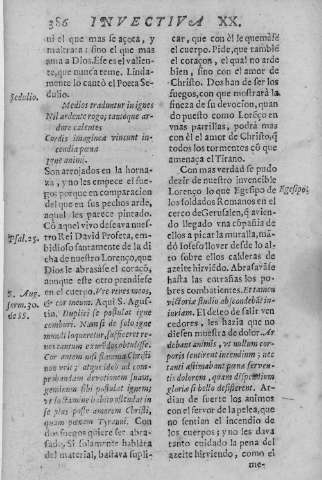 386 INVECTIVA XX.
ni el que mas se açota, y
maltrata: sino el que mas
ama a Dios. Esse es el valien-
te, que nunca teme. Linda-
mente lo cantò el Poeta Se-
dulio.
Sedulio.
Medios traduntur in ignes
Nil ardente rogo; tantoque ar-
dore calentes
Cordis imaginea vincunt in-
cendia pena
igne animi.
Son arrojados en la horna-
za, y no les empece el fue-
go: porque en comparacion
del que en sus pechos arde,
aquel les parece pintado.
Cõ aquel vivo desseava nues-
tro Rei David Profeta, em-
Psal. 25.
bidioso santamente de la di
cha de nuestro Lorenço, que
Dios le abrasâse el coraçõ,
aunque este otro prendiese
en el cuerpo. Vre renes meos,
& cor meum. Aqui S. Agus-
S. Aug.
serm. 30.
de SS.
tin. Duplici se postulat igne
comburi. Nam si de solo igne
mundi loqueretur, sufficeret re-
nes tantum exustos obtulisse.
Cor autem nisi flamma Christi
non vrit; atque ideo ad com-
prendam devotionem suam,
geminum sibi postulat ignem
in se plus posse amorem Christi,
quam pœnam Tyranni. Con
dos fuegos quiere ser abra-
sado, Si solamente hablâra
del material, bastava supli-
car, que con èl le quemâse
el cuerpo. Pide, que tambiẽ
el coraçon, el qual no arde
bien, sino con el amor de
Christo. Dos han de ser los
fuegos, con que mostrará la
fineza de su devocion, quan
do puesto como Lorẽço en
vnas parrillas, podrá mas
con èl el amor de Christo, q̃
todos los tormentos cõ que
amenaça el Tirano.
Con mas verdad se pudo
dezir de nuestro invencible
Lorenço lo que Egesipo de
Egesipo;
los soldados Romanos en el
cerco de Gerusalen, q̃ avien
do llegado vna cõpañia de
ellos a picar la muralla, mã-
dò Iosefo llover desde lo al-
to sobre ellos calderas de
azeite hirviẽdo. Abrasavâse
hasta las entrañas los po-
bres combatientes. Et tamen
victoriæ studio abscondebãt in-
iuriam. El deseo de salir ven
cedores, les hazia que no
diessen muestra de dolor. Ar
debant animis, vt nullum cor-
poris sentirent incendium; nec
tanti æstimabant pœnæ ferven-
tis dolorem, quam dispendium
gloriæ si bello desisterent. Ar-
dian de suerte los animos
con el servor de la pelea, que
no sentian el incendio de
los cuerpos; y no les dava
tanto cuidado la pena del
azeite hirviendo, como el
me-